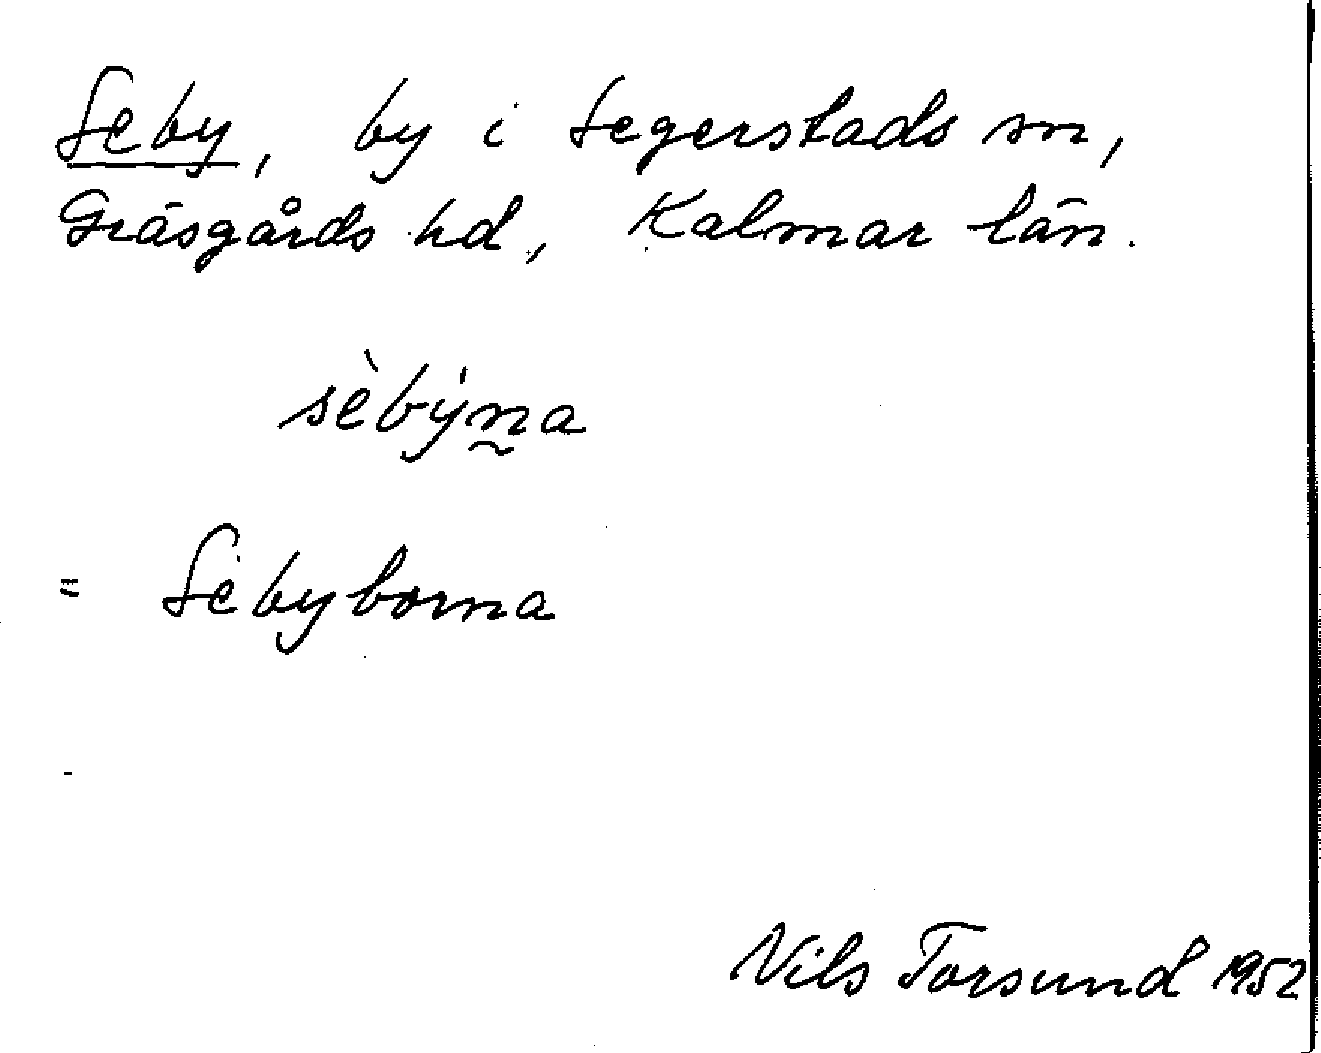 Seby, by i Segerstads sn,
Gräsgårds hd, Kalmar län.
sèbýn̰a
= Sebyborna
Nils Torsund 1952